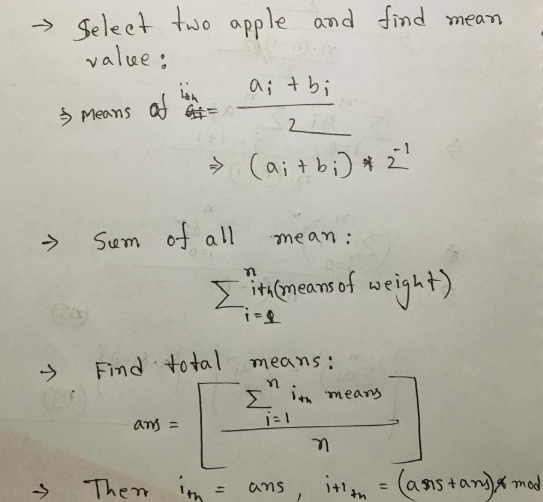 → Select two apple and find mean
value:
⇒ Means of ith = (ai + bi) / 2
⇒ (ai + bi) * 2^-1
→ Sum of all mean:
n
Σ ith(means of weight)
i=1
→ Find total means:
ans = [ (Σ_{i=1}^{n} ith means) / n ]
→ Then ith = ans, i+1th = (ans+ans)% mod